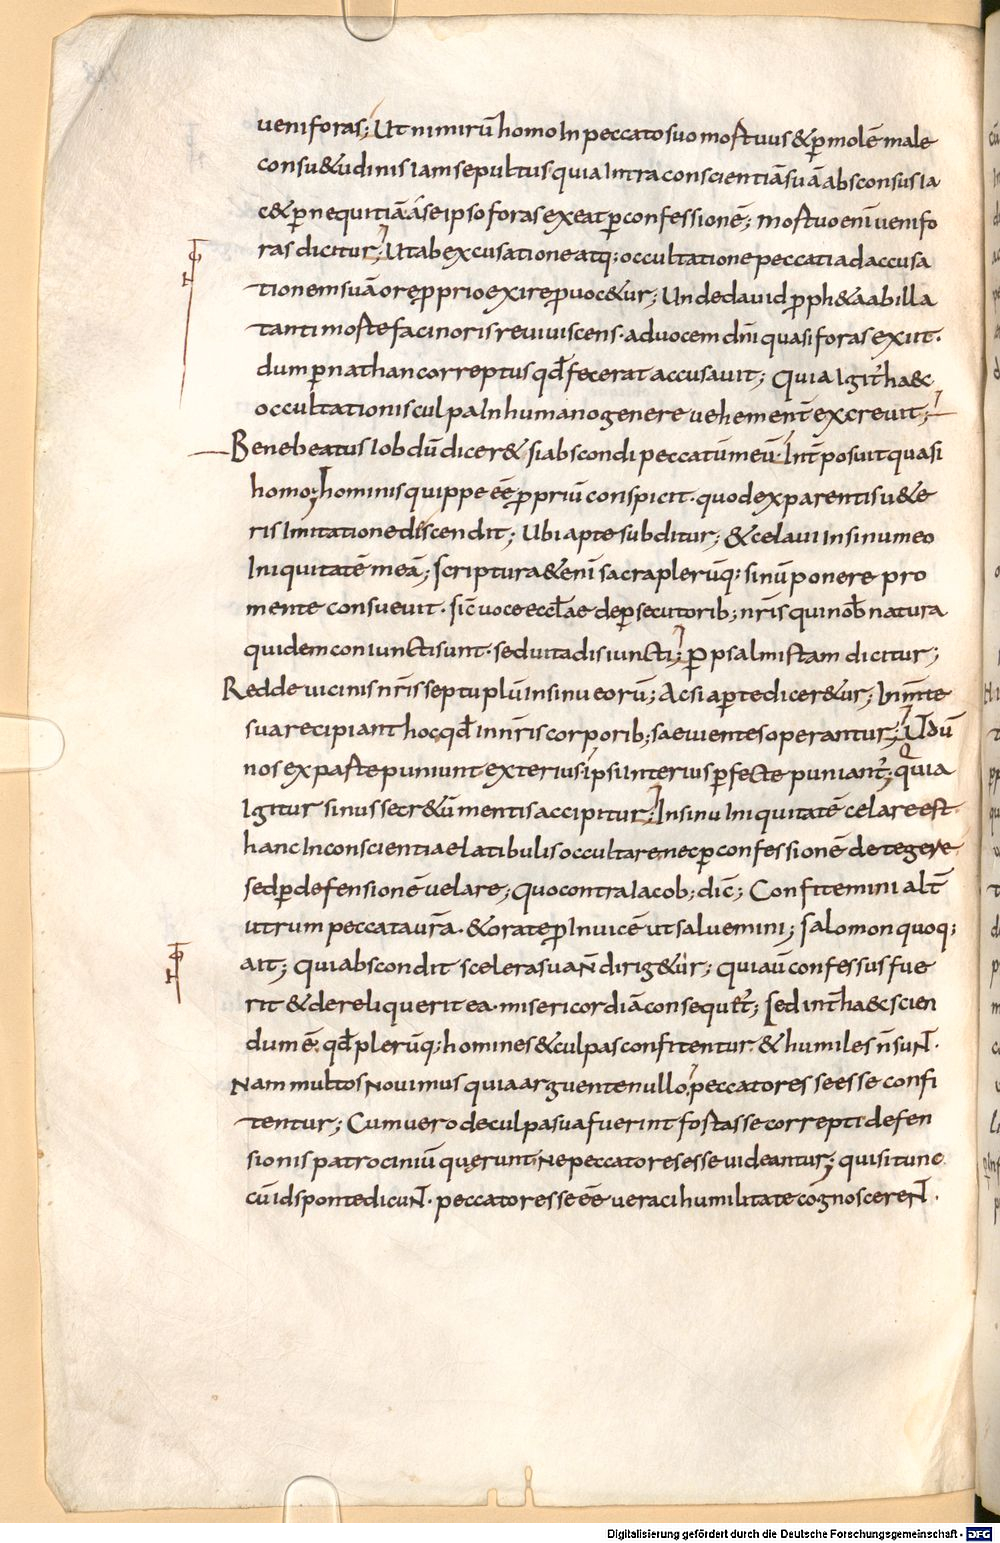 ueni foras; Ut nimirū homo In peccato suo mortuus & p molē male
consu&udinis Iam sepultus quia Intra conscientiā suā absconsus Ia
c& p nequitiā. a se ipso foras exeat p confessionē; mortuo enī ueni fo
ras dicitur; Ut ab excusatione atq; occultatione peccati ad accusa
tionem suā ore pprio exire puoc&ur; Unde dauid pph&a ab illa
tanti morte facinoris reuiuiscens. ad uocem dnī quasi foras exiit.
dum p nathan correptus qđ fecerat accusauit; Quia Igit' ha&c
occultationis culpa In humano genere uehement' excreuit;
Bene beatus Iob dū dicer& si abscondi peccatū meū. Int' posuit quasi
homo; hominis quippe eē ppriū conspicit. quod ex parentis u&e
ris Imitatione discendit; Ubi apte subditur; & celaui In sinu meo
Iniquitatē meā; scriptura &enī sacra plerūq; sinū ponere pro
mente consueuit. sic uoce ecclae de psecutorib; nrīs qui nob natura
quidem coniuncti sunt. sed uita disiuncti; p psalmistam dicitur;
Redde uicinis nrīs septuplū In sinu eorū; Ac si apte dicer&ur; In mīte
sua recipiant hoc qđ in nrīs corporib; saeuientes operantur; Ut dū
nos ex parte puniunt exterius ipsi Interius pfecte puniant'; quia
Igitur sinus secr&ū mentis accipitur; In sinu Iniquitatē celare est
hanc In conscientiae latibulis occultare nec p confessionē detegere
sed p defensionē uelare; Quo contra Iacob; dic; Confitemini alt'
utrum peccata urā. & orate p Inuicē ut saluemini; salomon quoq;
ait; Qui abscondit scelera sua N dirig&ur; qui aū confessus fue
rit & dereliquerit ea. misericordiā consequet'; sed int' ha&c scien
dum ē. qđ plerūq; homines & culpas confitentur. & humiles n suNT.
Nam multos Nouimus qui arguente nullo. peccatores se esse confi
tentur; Cum uero de culpa sua fuerint fortasse correpti defen
sionis patrociniū querunt. Ne peccatores esse uideantur; qui si tunc
cū id sponte dicuNT. peccatores se eē ueraci humilitate cognoscereNT.
Digitalisierung gefördert durch die Deutsche Forschungsgemeinschaft - DFG